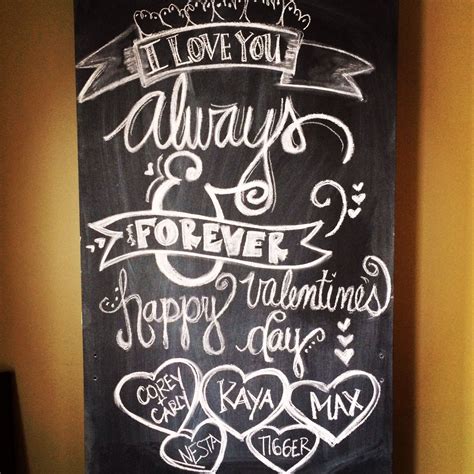 I LOVE YOU
always
&
FOREVER
happy valentine's
day
COREY + CARLY KAYA MAX
NESTA TIGGER